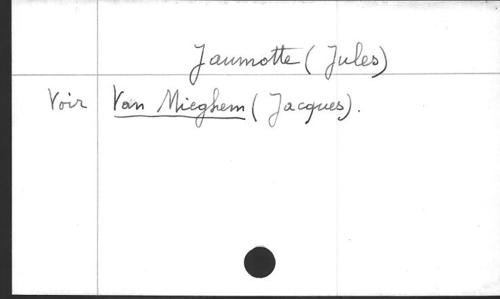 Jaumotte (Jules)
Voir Van Mieghem (Jacques).